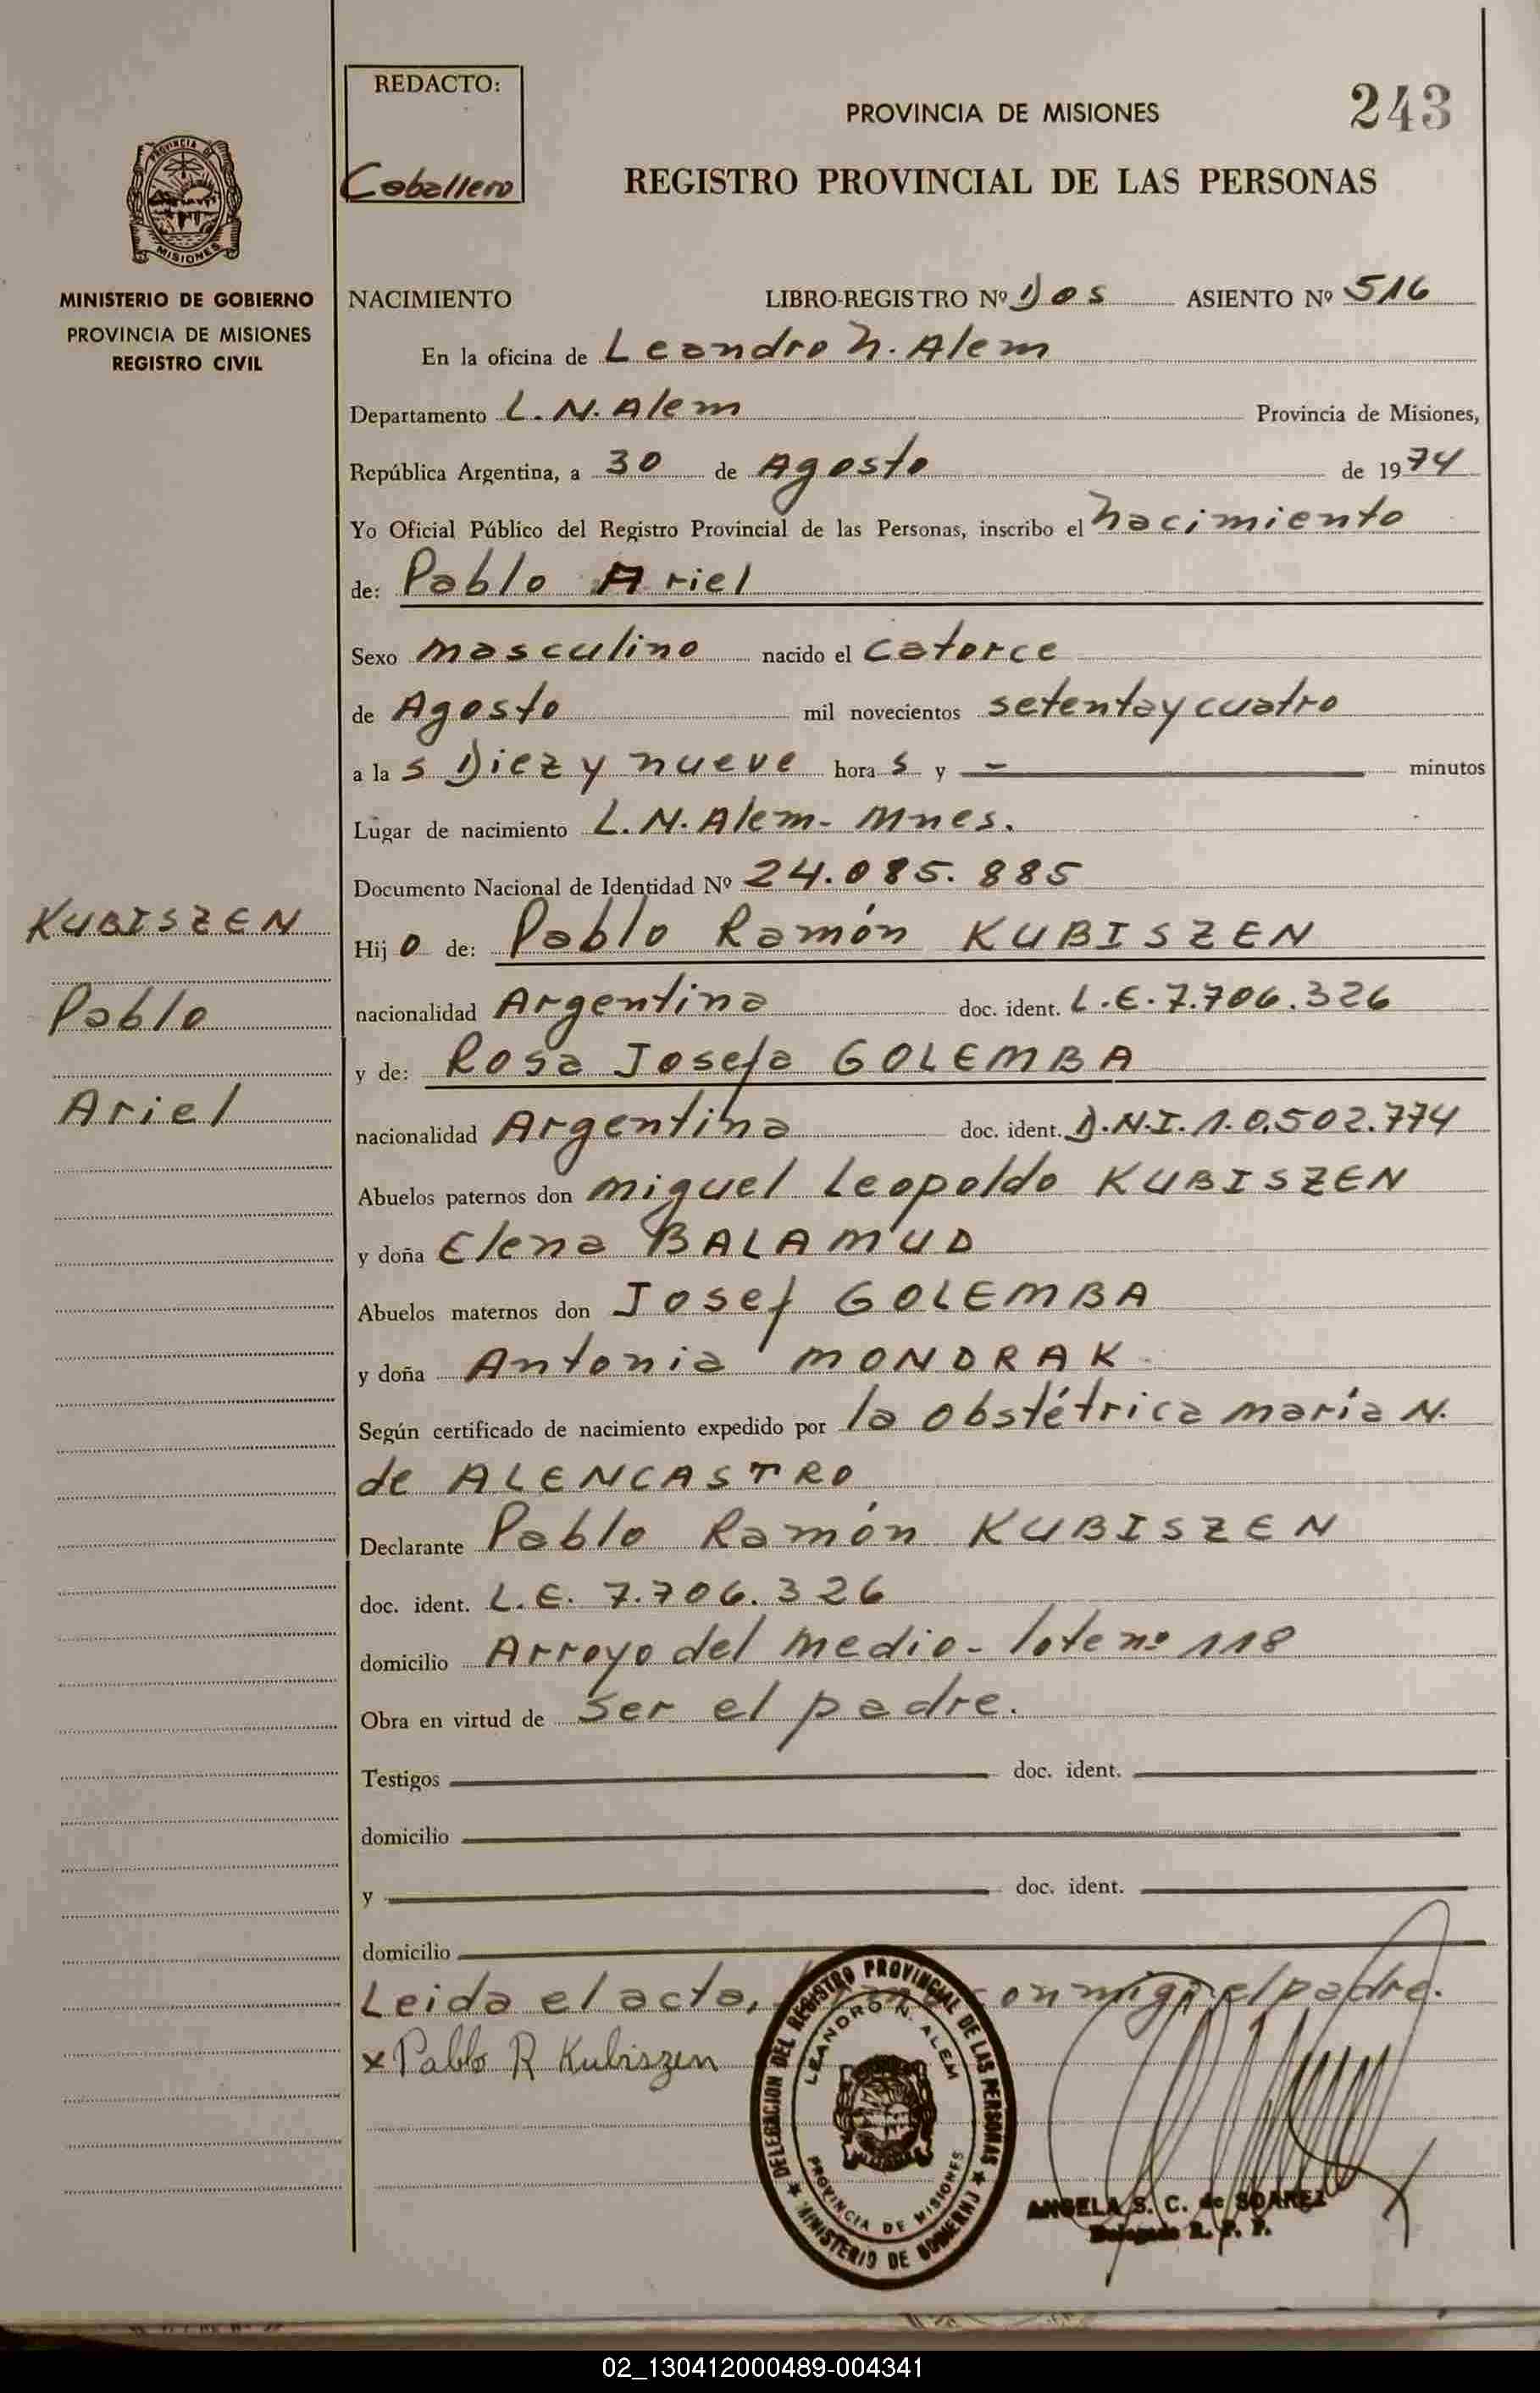 REDACTO:
Caballero
PROVINCIA DE MISIONES
243
REGISTRO PROVINCIAL DE LAS PERSONAS
PROVINCIA DE
MISIONES
MINISTERIO DE GOBIERNO
PROVINCIA DE MISIONES
REGISTRO CIVIL
NACIMIENTO LIBRO-REGISTRO Nº Dos ASIENTO Nº 516
En la oficina de Leandro N. Alem
Departamento L. N. Alem Provincia de Misiones,
República Argentina, a 30 de Agosto de 1974
Yo Oficial Público del Registro Provincial de las Personas, inscribo el nacimiento
de: Pablo Ariel
Sexo masculino nacido el catorce
de Agosto mil novecientos setenta y cuatro
a la s Diez y nueve hora s y — minutos
Lugar de nacimiento L. N. Alem - Mnes.
Documento Nacional de Identidad Nº 24.085.885
Hij o de: Pablo Ramón KUBISZEN
nacionalidad Argentina doc. ident. L.E. 7.706.326
y de: Rosa Josefa GOLEMBA
nacionalidad Argentina doc. ident. D.N.I. 10.502.774
Abuelos paternos don Miguel Leopoldo KUBISZEN
y doña Elena BALAMUD
Abuelos maternos don Josef GOLEMBA
y doña Antonia MONDRAK
Según certificado de nacimiento expedido por la obstétrica María N.
de ALENCASTRO
Declarante Pablo Ramón KUBISZEN
doc. ident. L.E. 7.706.326
domicilio Arroyo del Medio - lote nº 118
Obra en virtud de ser el padre.
Testigos doc. ident.
domicilio
y doc. ident.
domicilio
Leida el acta, conmigo el padre.
x Pablo R Kubiszen
KUBISZEN
Pablo
Ariel
DELEGACION DEL REGISTRO PROVINCIAL DE LAS PERSONAS
MINISTERIO DE GOBIERNO
LEANDRO N. ALEM
PROVINCIA DE MISIONES
ANGELA S. C. de SOAREZ
Delegada R. P. P.
02_130412000489-004341